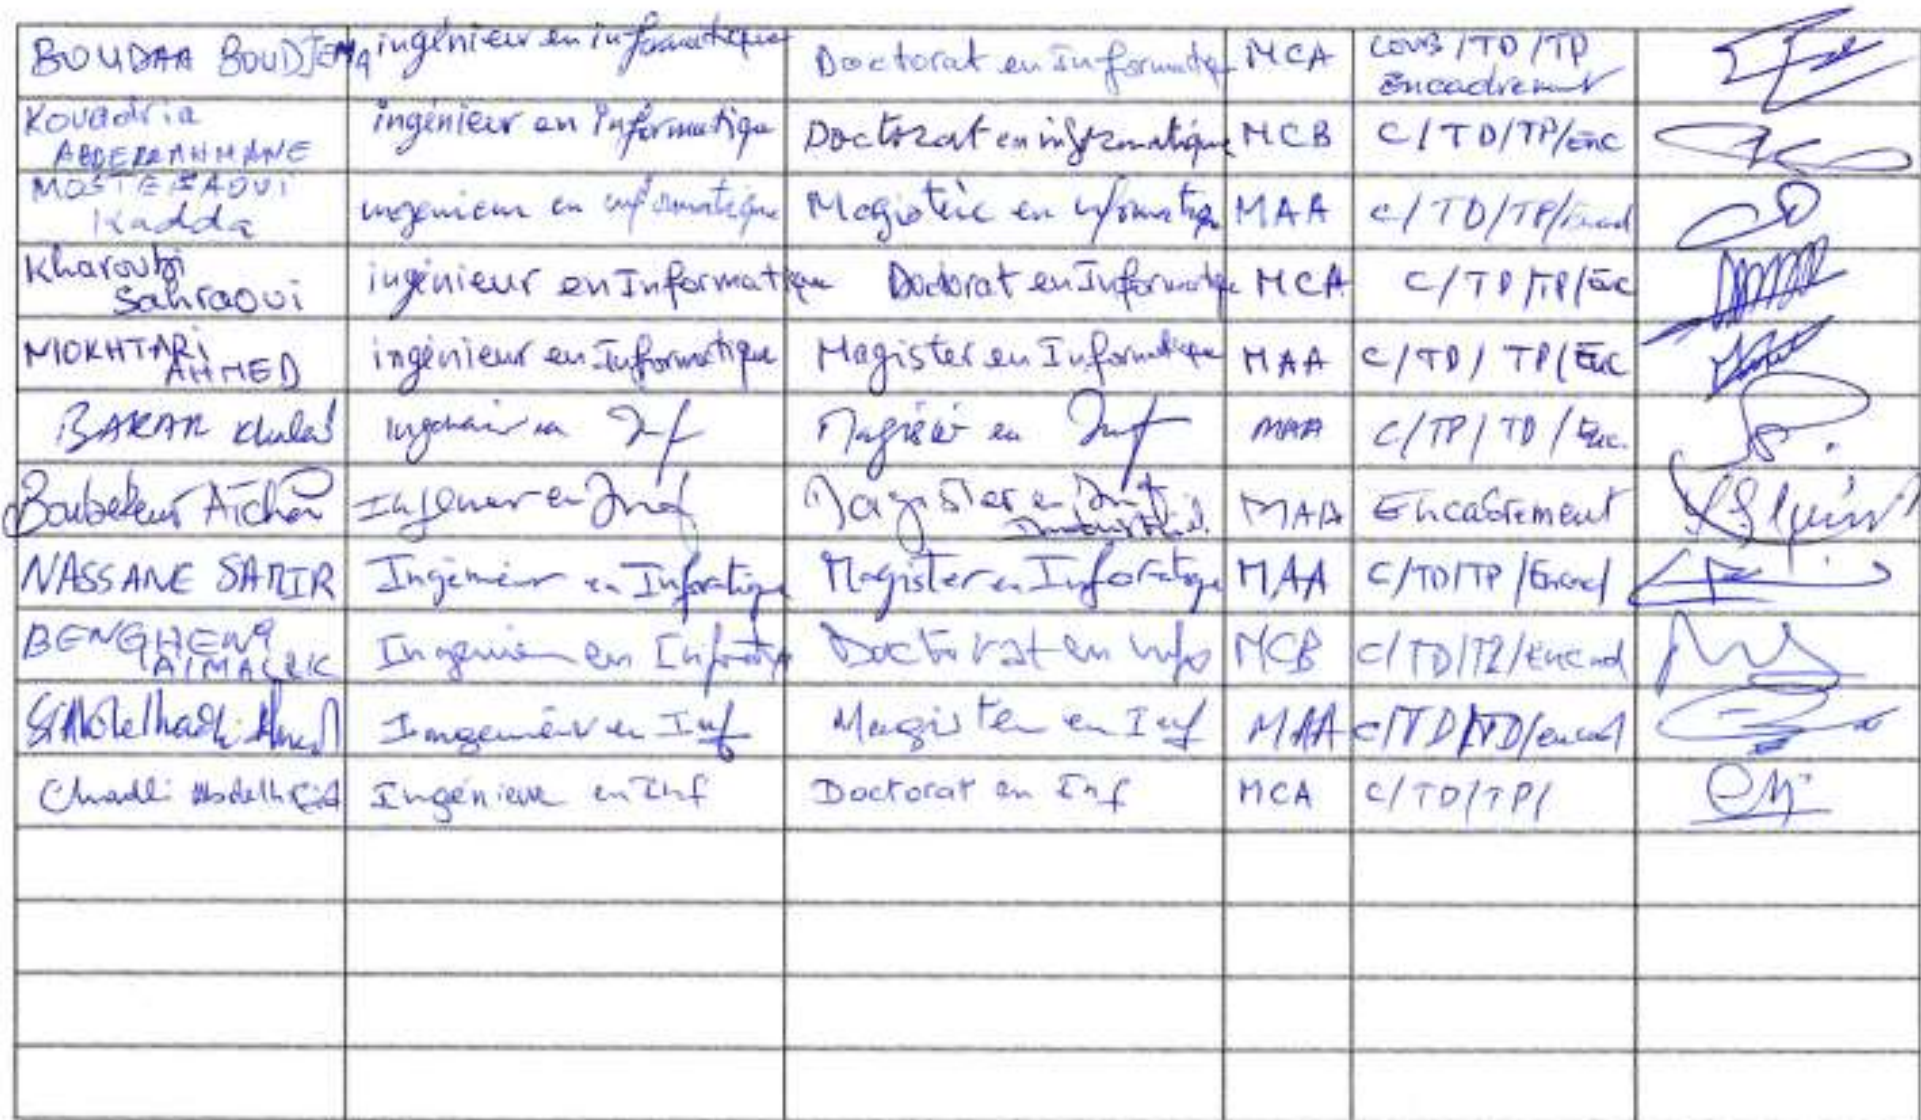 BOUDAA BOUDJEMA ingénieur en informatique Doctorat en Informatiq MCA COURS/TD/TP
Encadrement
Kouadria ingénieur en Informatique Doctorat en informatique MCB C/TD/TP/Enc
ABDERRAHMANE
MOSTEFAOUI ingenieur en informatique Magistère en informatiq MAA C/TD/TP/Encad
Kadda
Kharoubi ingénieur en Informatique Doctorat en Informatiq MCA C/TD/TP/Enc
Sahraoui
MOKHTARI ingénieur en Informatique Magister en Informatique MAA C/TD/TP/Enc
AHMED
BAKAR en Inf en Inf MAA C/TP/TD/Enc.
Boubekeur Aicha en Inf Magister en Inf MAA Encadrement
NASSANE SAMIR Ingénieur en Infratique Magister en Inforatique MAA C/TD/TP/Encad
BENGHENI Ingenieur en Doctorat en Info MCB C/TD/TP/encad
Inngenieur en Inf Magister en Inf MAA C/TD/TD/encad
Chadli Abdelhafid Ingénieur en Inf Doctorat en Inf MCA C/TD/TP/